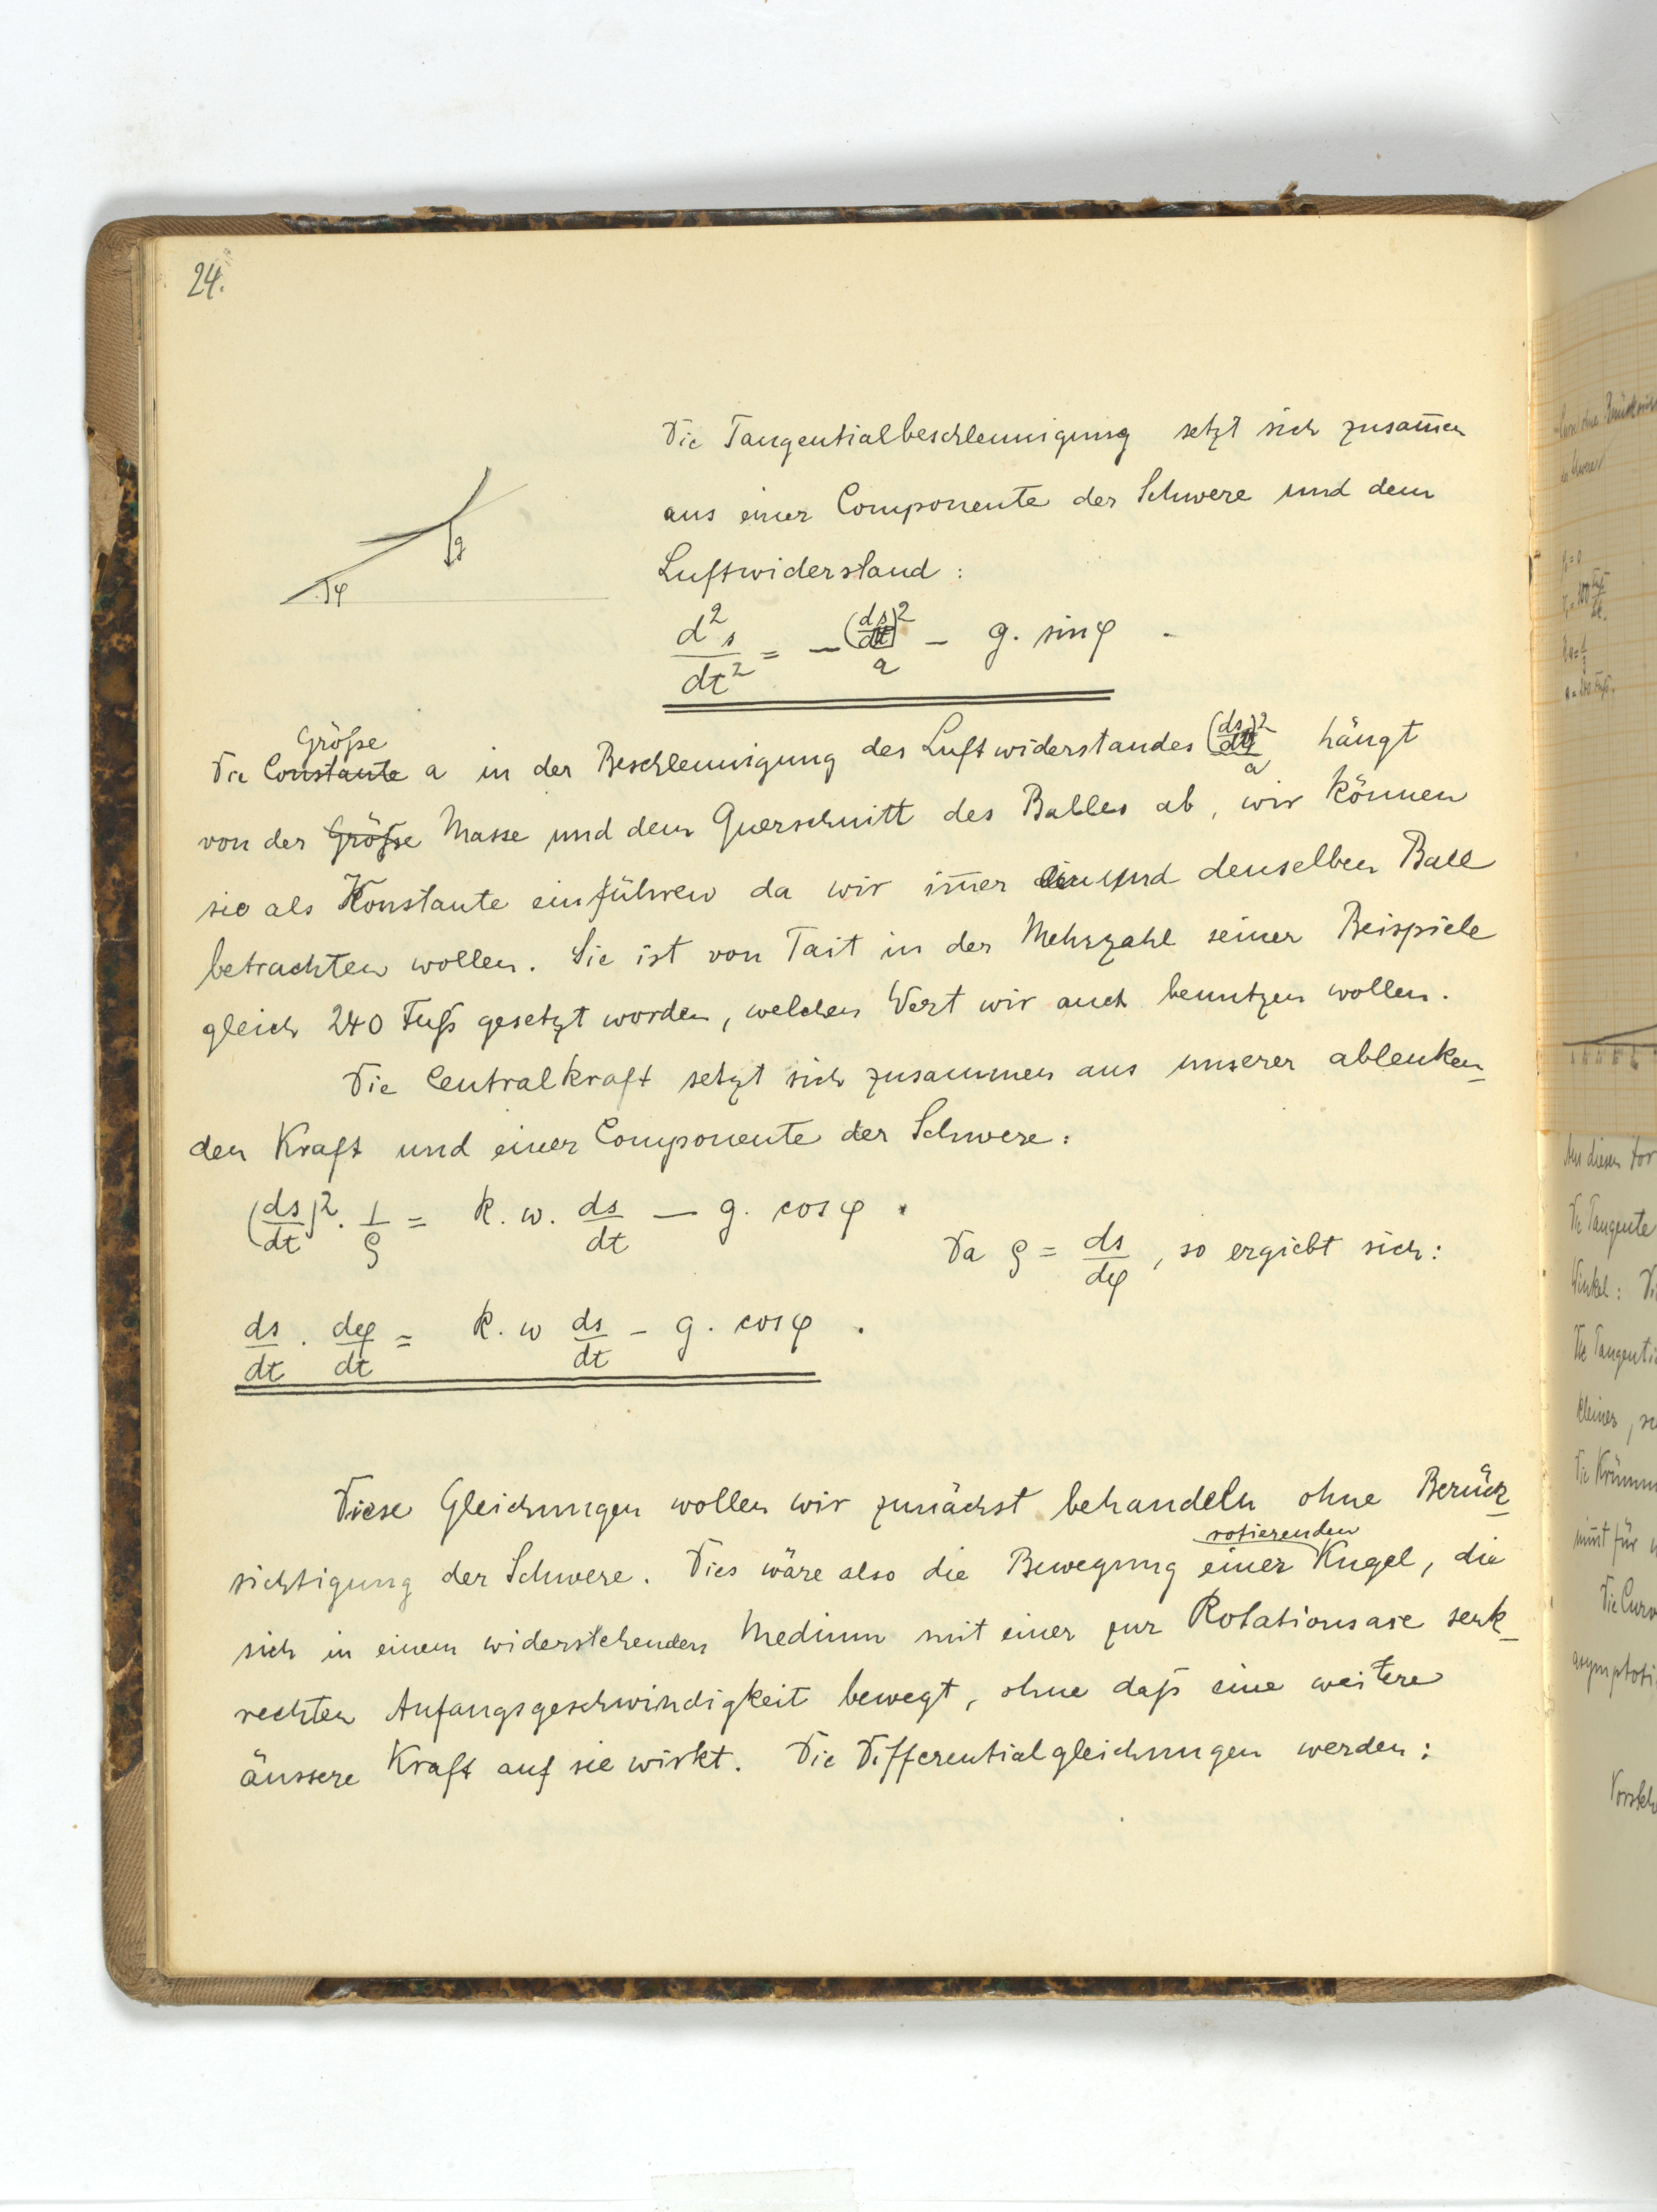 24.
Die Tangentialbeschleunigung setzt sich zusam̅en
aus einer Componente der Schwere und dem
Luftwiderstand:
g
φ
d²s/dt² = − (ds/dt)²/a − g. sin φ .
Größe
Die Constante a in der Beschleunigung des Luftwiderstandes (ds/dt)²/a hängt
von der Größe Masse und dem Querschnitt des Balles ab, wir können
sie als Konstante einführen da wir im̅er ein und denselben Ball
betrachten wollen. Sie ist von Tait in der Mehrzahl seiner Beispiele
gleich 240 Fuß gesetzt worden, welchen Wert wir auch benutzen wollen.
Die Centralkraft setzt sich zusammen aus unserer ablenken-
den Kraft und einer Componente der Schwere:
(ds/dt)² . 1/ρ = k. w. ds/dt − g. cos φ .
Da ρ = ds/dφ , so ergiebt sich:
ds/dt . dφ/dt = k. w ds/dt − g. cos φ .
Diese Gleichungen wollen wir zunächst behandeln ohne Berück-
rotierenden
sichtigung der Schwere. Dies wäre also die Bewegung einer Kugel, die
sich in einem widerstehenden Medium mit einer zur Rotationsaxe senk-
rechten Anfangsgeschwindigkeit bewegt, ohne daß eine weitere
äussere Kraft auf sie wirkt. Die Differentialgleichungen werden:
Aus diesen
Die Tangente
Winkel:
Die Tangenti
kleiner,
Die Krümm
nim̅t für
Die Curv
asymptoti